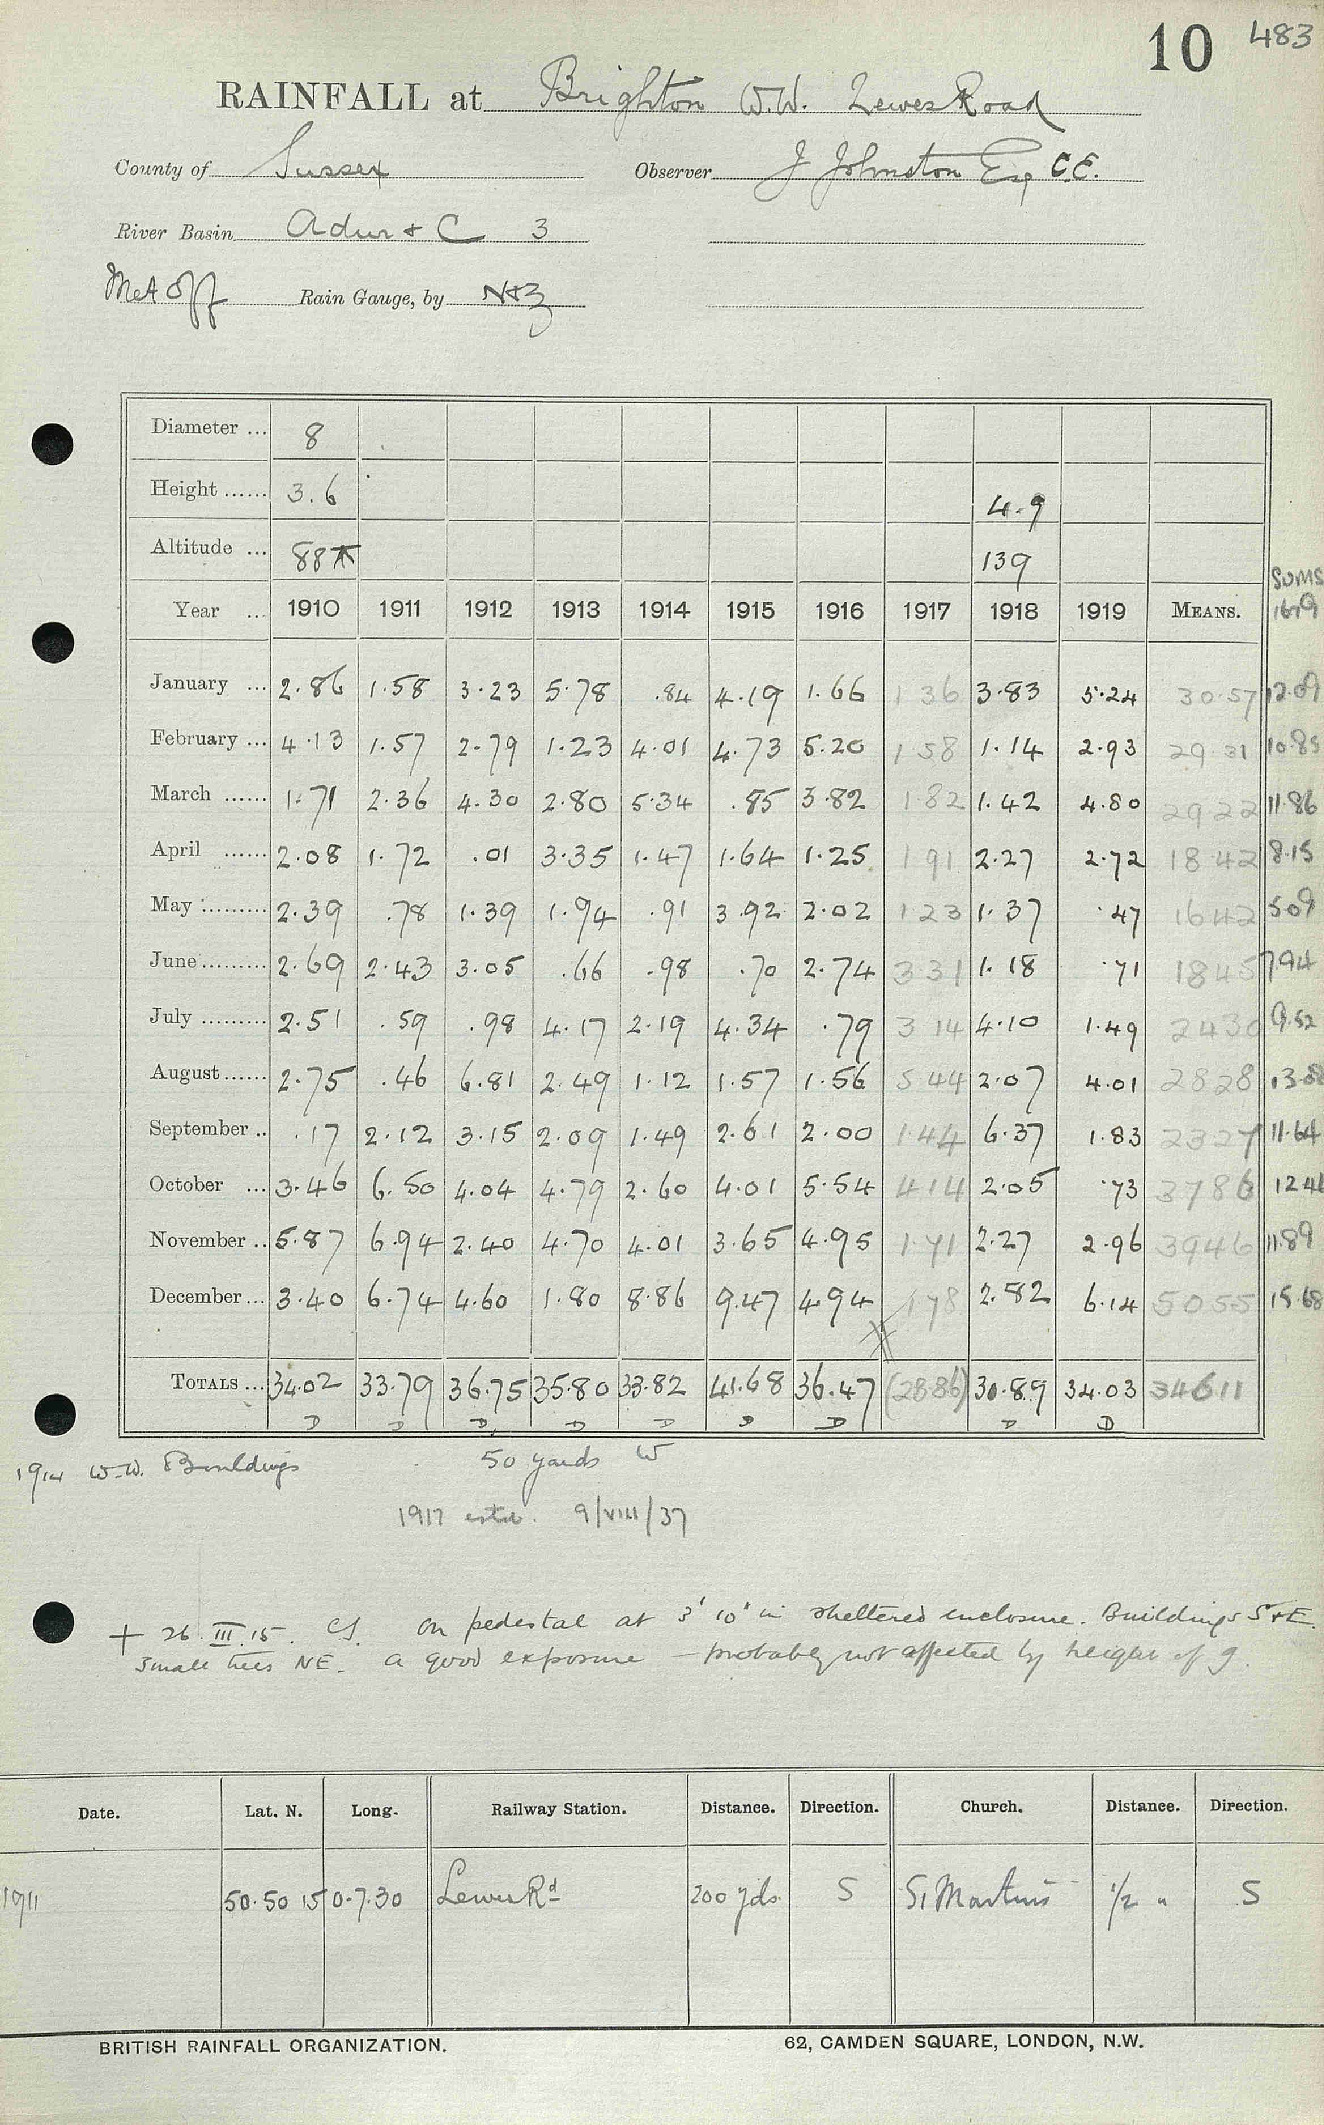 10 483
RAINFALL at Brighton W.W. Lewes Road
County of Sussex Observer J Johnston Esq C.E.
River Basin Adur & C 3
Met Off Rain Gauge, by N&Z
Diameter ... 8
Height ...... 3.6 4.9
Altitude ... 88 139
SUMS
Year ... 1910 1911 1912 1913 1914 1915 1916 1917 1918 1919 MEANS.
January ... 2.86 1.58 3.23 5.78 .84 4.19 1.66 1 36 3.83 5.24 30.57 12.09
February ... 4.13 1.57 2.79 1.23 4.01 4.73 5.20 1 58 1.14 2.93 29 31 10.85
March ...... 1.71 2.36 4.30 2.80 5.34 .85 3.82 1 82 1.42 4.80 29 22 11.86
April ...... 2.08 1.72 .01 3.35 1.47 1.64 1.25 1 91 2.27 2.72 18 42 8.15
May ......... 2.39 .78 1.39 1.94 .91 3.92 2.02 1 23 1.37 .47 16 42 5.09
June ......... 2.69 2.43 3.05 .66 .98 .70 2.74 3 31 1.18 .71 18 45 7.94
July ......... 2.51 .59 .98 4.17 2.19 4.34 .79 3 14 4.10 1.49 24 30 9.52
August ...... 2.75 .46 6.81 2.49 1.12 1.57 1.56 5 44 2.07 4.01 28 28 13.08
September .. .17 2.12 3.15 2.09 1.49 2.61 2.00 1 44 6.37 1.83 23 27 11.64
October ... 3.46 6.50 4.04 4.79 2.60 4.01 5.54 4 14 2.05 .73 37 86 12.46
November .. 5.87 6.94 2.40 4.70 4.01 3.65 4.95 1 71 2.27 2.96 39 46 11.89
December ... 3.40 6.74 4.60 1.80 8.86 9.47 4.94 1 78 2.82 6.14 50 55 15.68
TOTALS ... 34.02 33.79 36.75 35.80 33.82 41.68 36.47 (28.86) 30.89 34.03 346 11
D D D D D D D D D
1914 W.W. Buildings 50 yards W
1917 estd. 9/VIII/37
+ 26.III.15. on pedestal at 3' 10" in sheltered enclosure. Buildings S+E.
Small trees NE. a good exposure — probably not affected by height of g.
Date. Lat. N. Long. Railway Station. Distance. Direction. Church. Distance. Direction.
1911 50.50 15 0.7.30 Lewes Rd 200 yds. S St Martins 1/2 " S
BRITISH RAINFALL ORGANIZATION. 62, CAMDEN SQUARE, LONDON, N.W.